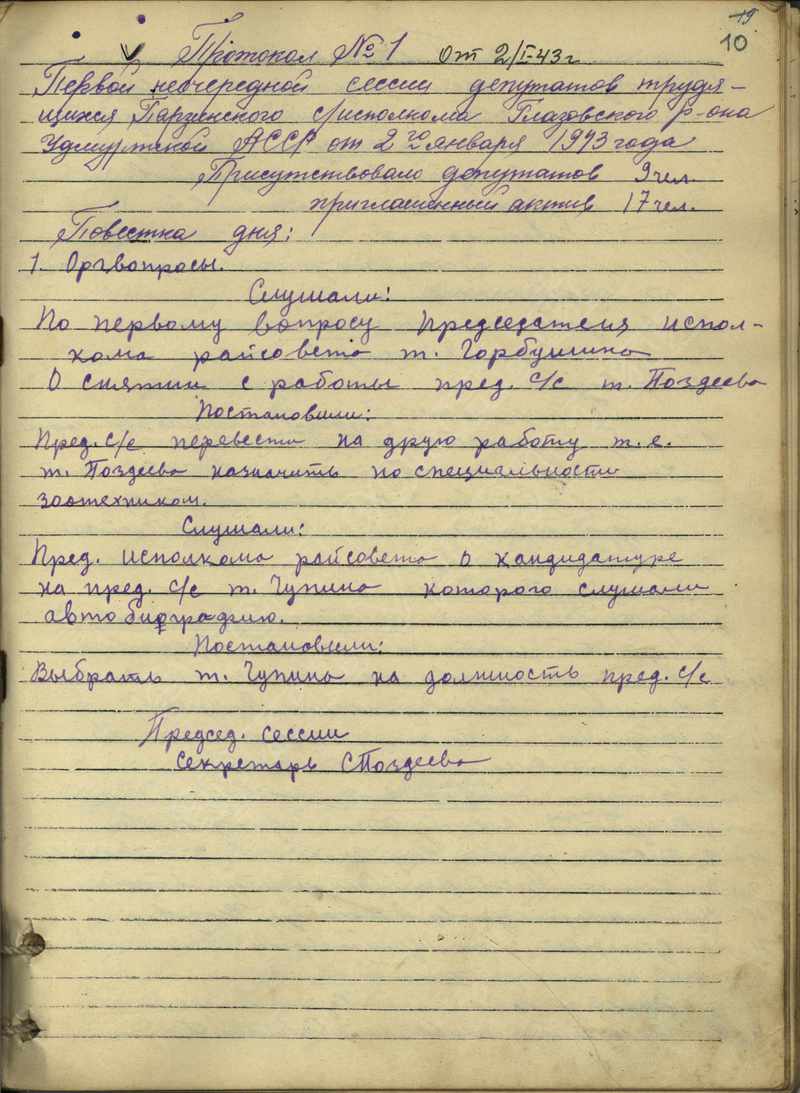 19
10
Протокол № 1 от 2/I-43 г
Первой неочередной сессии депутатов трудя-
щихся Парзинского с/исполкома Глазовского р-она
Удмуртской АССР от 2го января 1943 года
Присутствовало депутатов 9 чел.
приглашенный актив 17 чел.
Повестка дня:
1. Оргвопросы.
Слушали:
По первому вопросу председателя испол-
кома райсовета т. Горбушина
О снятии с работы пред. с/с т. Поздеева
Постановили:
Пред. с/с перевести на другую работу т.е.
т. Поздеева назначить по специальности
зоотехником.
Слушали:
Пред. исполкома райсовета о кандидатуре
на пред. с/с т. Чупина которого слушали
автобиографию.
Постановили:
Выбрать т. Чупина на должность пред. с/с
Председ. сессии
Секретарь СПоздеева